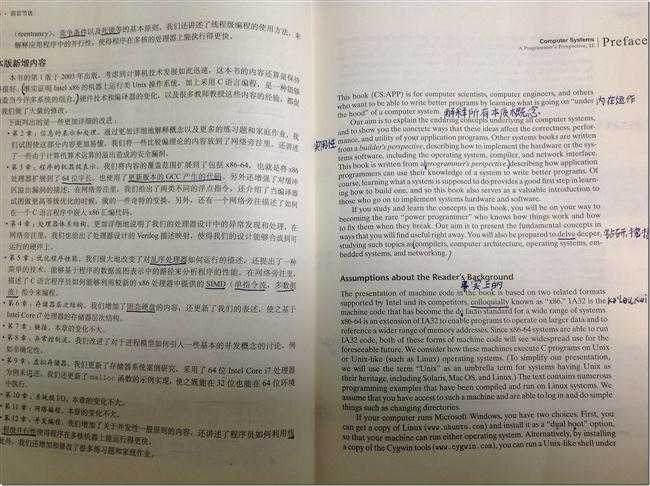 (reentrancy)、竞争条件以及死锁等的基本原则。我们还讲述了线程级编程的使用方法，来
解释应用程序中的并行性，使得程序在多核的处理器上能执行得更快。
本版新增内容
本书的第 1 版于 2003 年出版。考虑到计算机技术发展如此迅速，这本书的内容还算是保持
得很好。事实证明 Intel x86 的机器上运行类 Unix 操作系统，加上采用 C 语言编程，是一种能够
涵盖当今许多系统的组合。硬件技术和编译器的变化，以及很多教师教授这些内容的经验，都促
使我们做了大量的修改。
下面列出的是一些更加详细的改进。
• 第 2 章：信息的表示和处理。通过更加详细地解释概念以及更多的练习题和家庭作业，我
们试图使这部分内容更加易懂。我们将一些比较偏理论的内容放到了网络旁注里。还讲述
了一些由于计算机算术运算的溢出造成的安全漏洞。
• 第 3 章：程序的机器级表示。我们将内容的覆盖范围扩展到了包括 x86-64，也就是将 x86
处理器扩展到了 64 位字长。也使用了更新版本的 GCC 产生的代码。另外还增强了对缓冲
区溢出漏洞的描述。在网络旁注里，我们给出了两类不同的浮点指令，还介绍了当编译器
试图做更高等级优化的时候，做的一些奇特的变换。另外，还有一个网络旁注描述了如何
在一个 C 语言程序中嵌入 x86 汇编代码。
• 第 4 章：处理器体系结构。更加详细地说明了我们的处理器设计中的异常发现和处理。在
网络旁注里，我们也给出了处理器设计的 Verilog 描述映射，使得我们的设计能够合成到可
运行的硬件上。
• 第 5 章：优化程序性能。我们极大地改变了对乱序处理器如何运行的描述，还提出了一种
简单的技术，能够基于程序的数据流图表示中的路径来分析程序的性能。在网络旁注里，
描述了 C 语言程序员如何能够利用较新的 x86 处理器中提供的 SIMD（单指令流，多数据
流）指令来编程。
• 第 6 章：存储器层次结构。我们增加了固态硬盘的内容，还更新了我们的表述，使之基于
Intel Core i7 处理器的存储器层次结构。
• 第 7 章：链接。本章的变化不大。
• 第 8 章：异常控制流。我们改进了对于进程模型如何引入一些基本的并发概念的讨论，例
如非确定性。
• 第 9 章：虚拟存储器。我们更新了存储器系统案例研究，采用了 64 位 Intel Core i7 处理器
为例来讲述。我们还更新了 malloc 函数的示例实现，使之既能在 32 位也能在 64 位环境
中执行。
• 第 10 章：系统级 I/O。本章的变化不大。
• 第 11 章：网络编程。本章的变化不大。
• 第 12 章：并发编程。我们增加了关于并发性一般原则的内容，还讲述了程序员如何利用线
程级并行性使得程序在多核机器上能运行得更快。
此外，我们还增加和修改了很多练习题和家庭作业。
Computer Systems
A Programmer's Perspective, 2E
Preface
This book (CS:APP) is for computer scientists, computer engineers, and others
who want to be able to write better programs by learning what is going on "under
the hood" of a computer system.
内在运作
解释所有本质概念
Our aim is to explain the enduring concepts underlying all computer systems,
and to show you the concrete ways that these ideas affect the correctness, perfor-
mance, and utility of your application programs. Other systems books are written
实用性
from a builder's perspective, describing how to implement the hardware or the sys-
tems software, including the operating system, compiler, and network interface.
This book is written from a programmer's perspective, describing how application
programmers can use their knowledge of a system to write better programs. Of
course, learning what a system is supposed to do provides a good first step in learn-
ing how to build one, and so this book also serves as a valuable introduction to
those who go on to implement systems hardware and software.
If you study and learn the concepts in this book, you will be on your way to
becoming the rare "power programmer" who knows how things work and how
to fix them when they break. Our aim is to present the fundamental concepts in
ways that you will find useful right away. You will also be prepared to delve deeper,
studying such topics as compilers, computer architecture, operating systems, em-
bedded systems, and networking.
Assumptions about the Reader's Background
事实上的
The presentation of machine code in the book is based on two related formats
supported by Intel and its competitors, colloquially known as "x86." IA32 is the
machine code that has become the de facto standard for a wide range of systems.
x86-64 is an extension of IA32 to enable programs to operate on larger data and to
reference a wider range of memory addresses. Since x86-64 systems are able to run
IA32 code, both of these forms of machine code will see widespread use for the
foreseeable future. We consider how these machines execute C programs on Unix
or Unix-like (such as Linux) operating systems. (To simplify our presentation,
we will use the term "Unix" as an umbrella term for systems having Unix as
their heritage, including Solaris, Mac OS, and Linux.) The text contains numerous
programming examples that have been compiled and run on Linux systems. We
assume that you have access to such a machine and are able to log in and do simple
things such as changing directories.
If your computer runs Microsoft Windows, you have two choices. First, you
can get a copy of Linux (www.ubuntu.com) and install it as a "dual boot" option,
so that your machine can run either operating system. Alternatively, by installing
a copy of the Cygwin tools (www.cygwin.com), you can run a Unix-like shell under